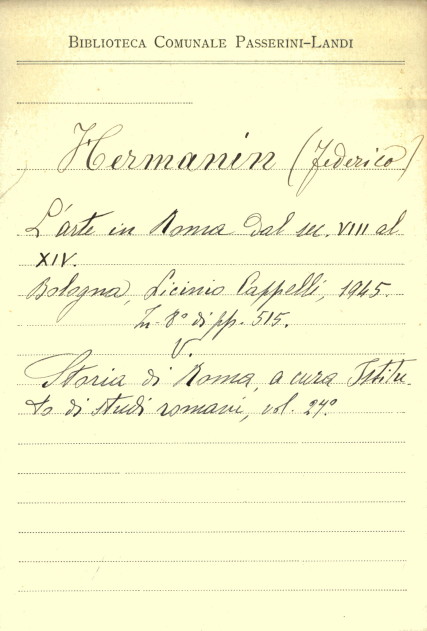 BIBLIOTECA COMUNALE PASSERINI-LANDI
Hermanin (Federico)
L'arte in Roma dal sec. VIII al
XIV.
Bologna, Licinio Cappelli, 1945.
In-8° di pp. 515.
V.
Storia di Roma, a cura Istitu-
to di studi romani, vol. 27°